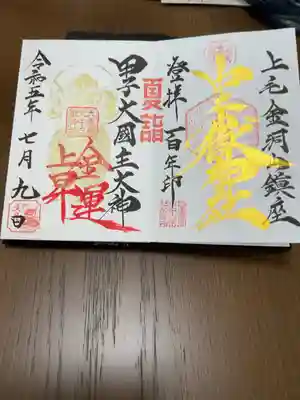 上毛金洞山鎮座
中之嶽神社
登拝百年印
夏詣
甲子大國主大神
金運
上昇
令和五年七月九日